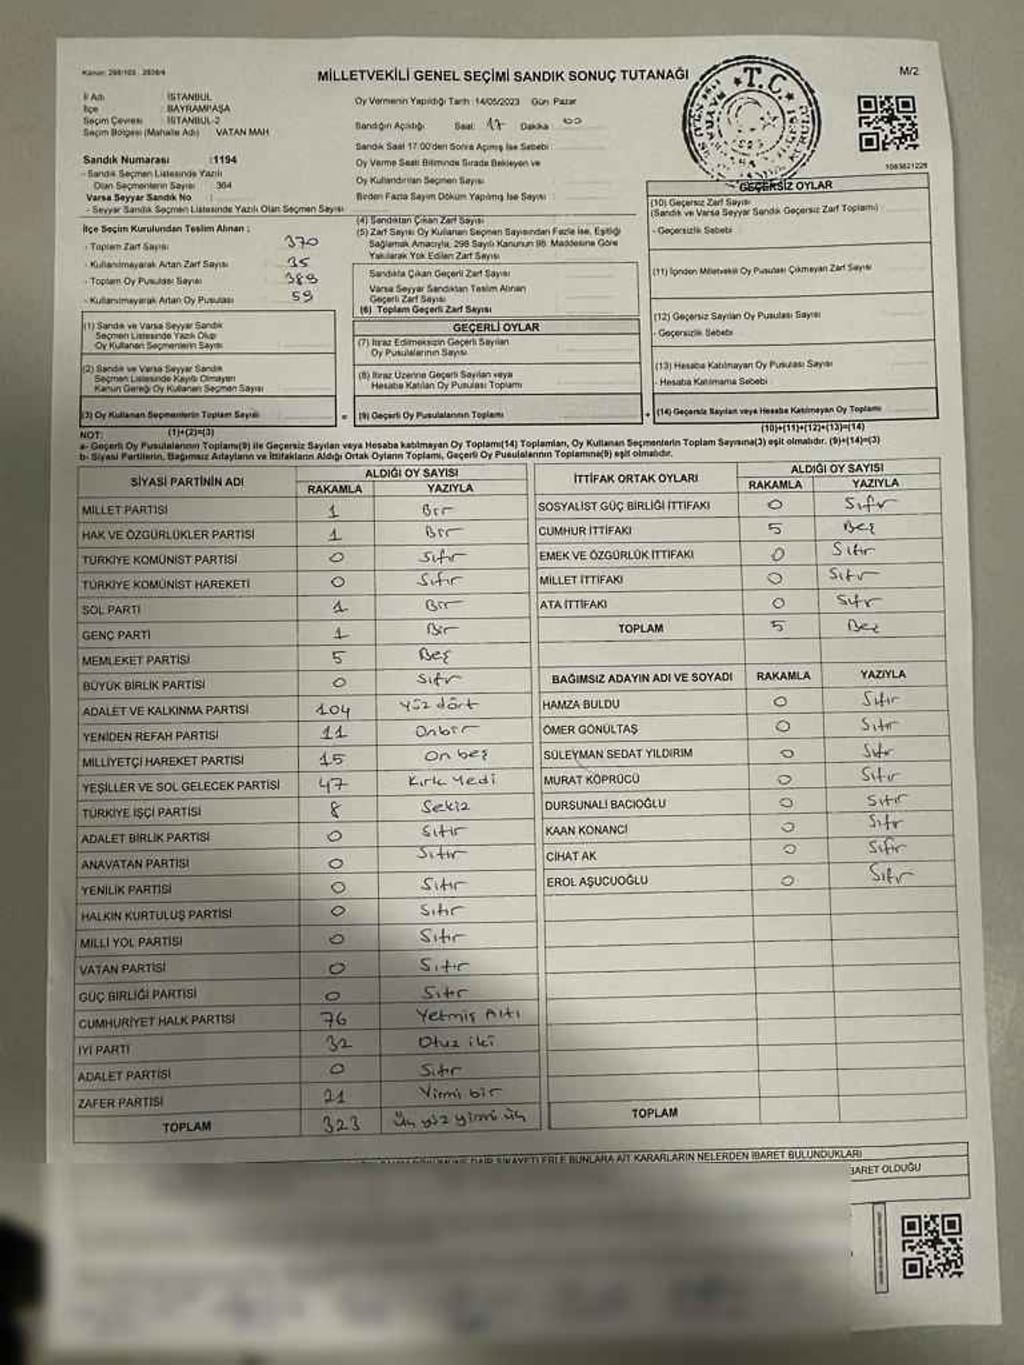 Kanun: 298/105
M/2
MİLLETVEKİLİ GENEL SEÇİMİ SANDIK SONUÇ TUTANAĞI
T.C.
İl Adı : İSTANBUL
İlçe : BAYRAMPAŞA
Seçim Çevresi : İSTANBUL-2
Seçim Bölgesi (Mahalle Adı) VATAN MAH
Sandık Numarası :1194
- Sandık Seçmen Listesinde Yazılı
Olan Seçmenlerin Sayısı : 364
Varsa Seyyar Sandık No :
- Seyyar Sandık Seçmen Listesinde Yazılı Olan Seçmen Sayısı
Oy Vermenin Yapıldığı Tarih :14/05/2023 Gün: Pazar
Sandığın Açıldığı Saat: 17 Dakika: 00
Sandık Saat 17:00'den Sonra Açılmış İse Sebebi :
Oy Verme Saati Bitiminde Sırada Bekleyen ve
Oy Kullandırılan Seçmen Sayısı
Birden Fazla Sayım Döküm Yapılmış İse Sayısı :
İlçe Seçim Kurulundan Teslim Alınan ;
- Toplam Zarf Sayısı : 370
- Kullanılmayarak Artan Zarf Sayısı : 35
- Toplam Oy Pusulası Sayısı : 389
- Kullanılmayarak Artan Oy Pusulası : 59
(1) Sandık ve Varsa Seyyar Sandık
Seçmen Listesinde Yazılı Olup
Oy Kullanan Seçmenlerin Sayısı
(2) Sandık ve Varsa Seyyar Sandık
Seçmen Listesinde Kayıtlı Olmayan
Kanun Gereği Oy Kullanan Seçmen Sayısı
(3) Oy Kullanan Seçmenlerin Toplam Sayısı
(1)+(2)=(3)
(4) Sandıktan Çıkan Zarf Sayısı
(5) Zarf Sayısı Oy Kullanan Seçmen Sayısından Fazla İse, Eşitliği
Sağlamak Amacıyla, 298 Sayılı Kanunun 98. Maddesine Göre
Yakılarak Yok Edilen Zarf Sayısı
Sandıkta Çıkan Geçerli Zarf Sayısı
Varsa Seyyar Sandıktan Teslim Alınan
Geçerli Zarf Sayısı
(6) Toplam Geçerli Zarf Sayısı
GEÇERLİ OYLAR
(7) İtiraz Edilmeksizin Geçerli Sayılan
Oy Pusulalarının Sayısı
(8) İtiraz Üzerine Geçerli Sayılan veya
Hesaba Katılan Oy Pusulası Toplamı
= (9) Geçerli Oy Pusulalarının Toplamı
1063821226
GEÇERSİZ OYLAR
(10) Geçersiz Zarf Sayısı
(Sandık ve Varsa Seyyar Sandık Geçersiz Zarf Toplamı)
- Geçersizlik Sebebi
(11) İçinden Milletvekili Oy Pusulası Çıkmayan Zarf Sayısı
(12) Geçersiz Sayılan Oy Pusulası Sayısı
- Geçersizlik Sebebi
(13) Hesaba Katılmayan Oy Pusulası Sayısı
- Hesaba Katılmama Sebebi
+ (14) Geçersiz Sayılan veya Hesaba Katılmayan Oy Toplamı
(10)+(11)+(12)+(13)=(14)
NOT:
a- Geçerli Oy Pusulalarının Toplamı(9) ile Geçersiz Sayılan veya Hesaba katılmayan Oy Toplamı(14) Toplamları, Oy Kullanan Seçmenlerin Toplam Sayısına(3) eşit olmalıdır. (9)+(14)=(3)
b- Siyasi Partilerin, Bağımsız Adayların ve İttifakların Aldığı Ortak Oyların Toplamı, Geçerli Oy Pusulalarının Toplamına(9) eşit olmalıdır.
SİYASİ PARTİNİN ADI ALDIĞI OY SAYISI
RAKAMLA YAZIYLA
MİLLET PARTİSİ 1 Bir
HAK VE ÖZGÜRLÜKLER PARTİSİ 1 Bir
TÜRKİYE KOMÜNİST PARTİSİ 0 Sıfır
TÜRKİYE KOMÜNİST HAREKETİ 0 Sıfır
SOL PARTİ 1 Bir
GENÇ PARTİ 1 Bir
MEMLEKET PARTİSİ 5 Beş
BÜYÜK BİRLİK PARTİSİ 0 Sıfır
ADALET VE KALKINMA PARTİSİ 104 yüz dört
YENİDEN REFAH PARTİSİ 11 Onbir
MİLLİYETÇİ HAREKET PARTİSİ 15 On beş
YEŞİLLER VE SOL GELECEK PARTİSİ 47 Kırk yedi
TÜRKİYE İŞÇİ PARTİSİ 8 Sekiz
ADALET BİRLİK PARTİSİ 0 Sıfır
ANAVATAN PARTİSİ 0 Sıfır
YENİLİK PARTİSİ 0 Sıfır
HALKIN KURTULUŞ PARTİSİ 0 Sıfır
MİLLİ YOL PARTİSİ 0 Sıfır
VATAN PARTİSİ 0 Sıfır
GÜÇ BİRLİĞİ PARTİSİ 0 Sıfır
CUMHURİYET HALK PARTİSİ 76 Yetmiş Altı
İYİ PARTİ 32 Otuz iki
ADALET PARTİSİ 0 Sıfır
ZAFER PARTİSİ 21 Yirmi bir
TOPLAM 323 Üç yüz yirmi üç
İTTİFAK ORTAK OYLARI ALDIĞI OY SAYISI
RAKAMLA YAZIYLA
SOSYALİST GÜÇ BİRLİĞİ İTTİFAKI 0 Sıfır
CUMHUR İTTİFAKI 5 Beş
EMEK VE ÖZGÜRLÜK İTTİFAKI 0 Sıfır
MİLLET İTTİFAKI 0 Sıfır
ATA İTTİFAKI 0 Sıfır
TOPLAM 5 Beş
BAĞIMSIZ ADAYIN ADI VE SOYADI RAKAMLA YAZIYLA
HAMZA BULDU 0 Sıfır
ÖMER GÖNÜLTAŞ 0 Sıfır
SÜLEYMAN SEDAT YILDIRIM 0 Sıfır
MURAT KÖPRÜCÜ 0 Sıfır
DURSUNALİ BACIOĞLU 0 Sıfır
KAAN KONANCİ 0 Sıfır
CİHAT AK 0 Sıfır
EROL AŞUCUOĞLU 0 Sıfır
TOPLAM
DAİR ŞİKAYETLERLE BUNLARA AİT KARARLARIN NELERDEN İBARET BULUNDUKLARI
İBARET OLDUĞU